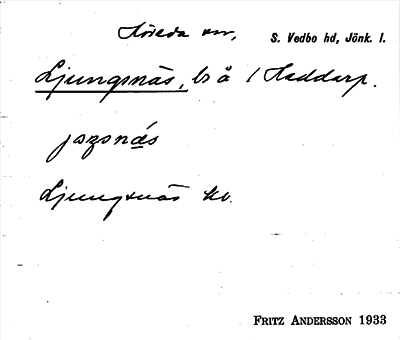 Höreda sn, S. Vedbo hd, Jönk. l.
Ljungsnäs, ls å / Haddarp.
jɔŋsnäs
Ljungsnäs kv.
FRITZ ANDERSSON 1933